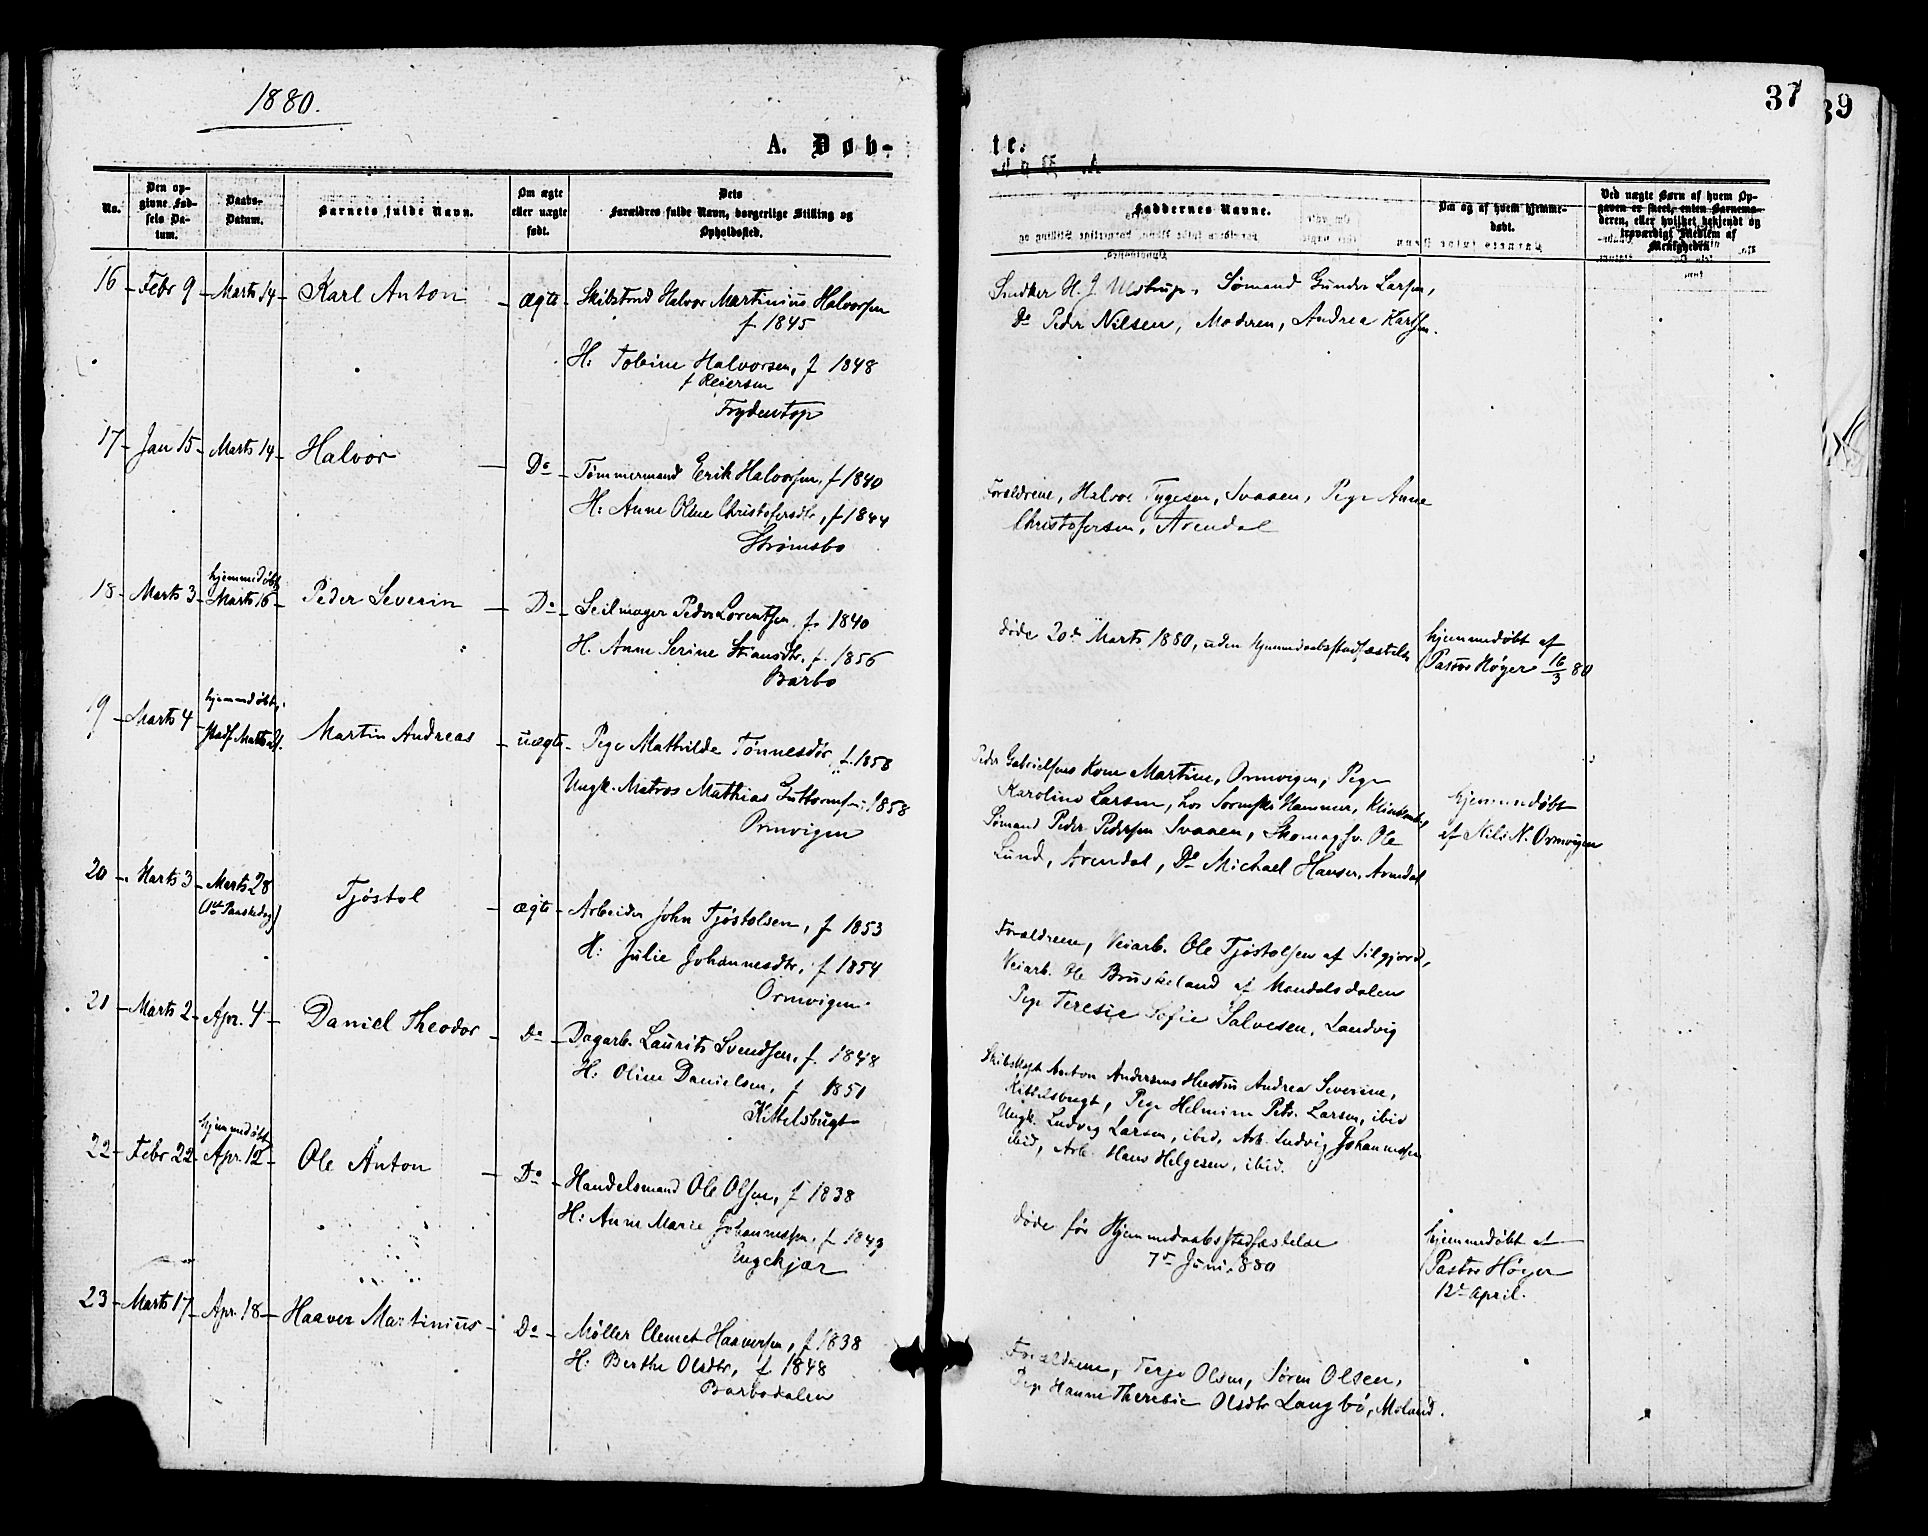 1880.
37
39
A. Døb-
te.
No.
Den op-
givne Fød-
sels Da-
tum.
Daabs-
Datum.
Barnets fulde Navn.
Om ægte
eller uægte
født.
Dets
Forældres fulde Navn, borgerlige Stilling og
Opholdssted.
Faddernes Navne.
Om og af hvem hjemme-
døbt.
Ved uægte Børn af hvem Op-
gaven er skeet, enten Barnemo-
deren, eller hvilket bekjendt og
troværdigt Medlem af
Menigheden.
16 Febr 9 Marts 14 Karl Anton ægte Skibstmd Halvor Martinius Halvorsen
f. 1845
H: Tobine Halvorsen, f 1848
f Reiersen
Frydentop
Snedker H. J. Ulstrup, Sømand Gunder Larsen,
Do Peder Nilsen, Moderen, Andrea Karlsen.
17 Jan 15 Marts 14 Halvor Do Tømmermand Erik Halvorsen, f 1840
H: Anne Oline Christofersdtr, f 1844
Strømsbo
Forældrene, Halvor Tygesen, Svaaen, Pige Anne
Christofersen, Arendal
18 Marts 3 hjemmedøbt
Marts 16 Peder Severin Do Seilmager Peder Lorentsen, f. 1840
H. Anne Serine Hansdtr, f. 1856
Barbo
døde 20de Marts 1880, uden Hjemmedaabsstadfæstelse
hjemmedøbt af
Pastor Høyer 16/3 80
19 Marts 4 hjemmedøbt,
stadf. Marts Martin Andreas uægte Pige Mathilde Tønnesdtr, f. 1858
Ungk. Matros Mathias Guttormsen: 1858
Ormvigen
Peder Gabrielsens Kone Martine, Ormvigen, Pige
Karoline Larsen, hos Hammer,
Sømand Peder Pedersen Svaaen, Skomagsv. Ole
Lund, Arendal, Do Michael Hansen, Arendal
hjemmedøbt
af Nils N. Ormvigen
20 Marts 3 Marts 28
(1ste Paaskedag) Tjøstol ægte Arbeider John Tjøstolsen, f 1853
H: Julie Johannesdtr, f. 1854
Ormvigen.
Forældrene, Veiarb. Ole Tjøstolsen af Silgjord,
Veiarb. Ole Bruskeland af Mandalsdalen
Pige Teresie Sofie Salvesen, Landvig
21 Marts 2 Apr. 4 Daniel Theodor Do Dagarb. Laurits Svendsen, f. 1848
H: Oline Danielsen, f 1851
Kittelsbugt
Skibskapt Anton Andersens Hustru Andrea Severine,
Kittelsbugt, Pige Helmine Petr. Larsen, ibid
Ungk. Ludvig Larsen, ibid, Arb. Ludvig Johannessen
ibid, Arb. Hans Helgesen, ibid.
22 Febr 22 hjemmedøbt
Apr. 12 Ole Anton Do Handelsmand Ole Olsen, f 1838
H: Anne Marie Johannessen, f 1843
Ungekjær
døde før Hjemmedaabsstadfæstelse
7de Juni 1880
hjemmedøbt af
Pastor Høyer
12te April.
23 Marts 17 Apr. 18 Haaver Martinius Do Møller Clemet Haaversen, f 1838
H: Berthe Olsdtr, f 1848
Barbodalen
Forældrene, Terje Olsen, Søren Olsen,
Pige Hanne Theresie Olsdtr Langbø, Moland.